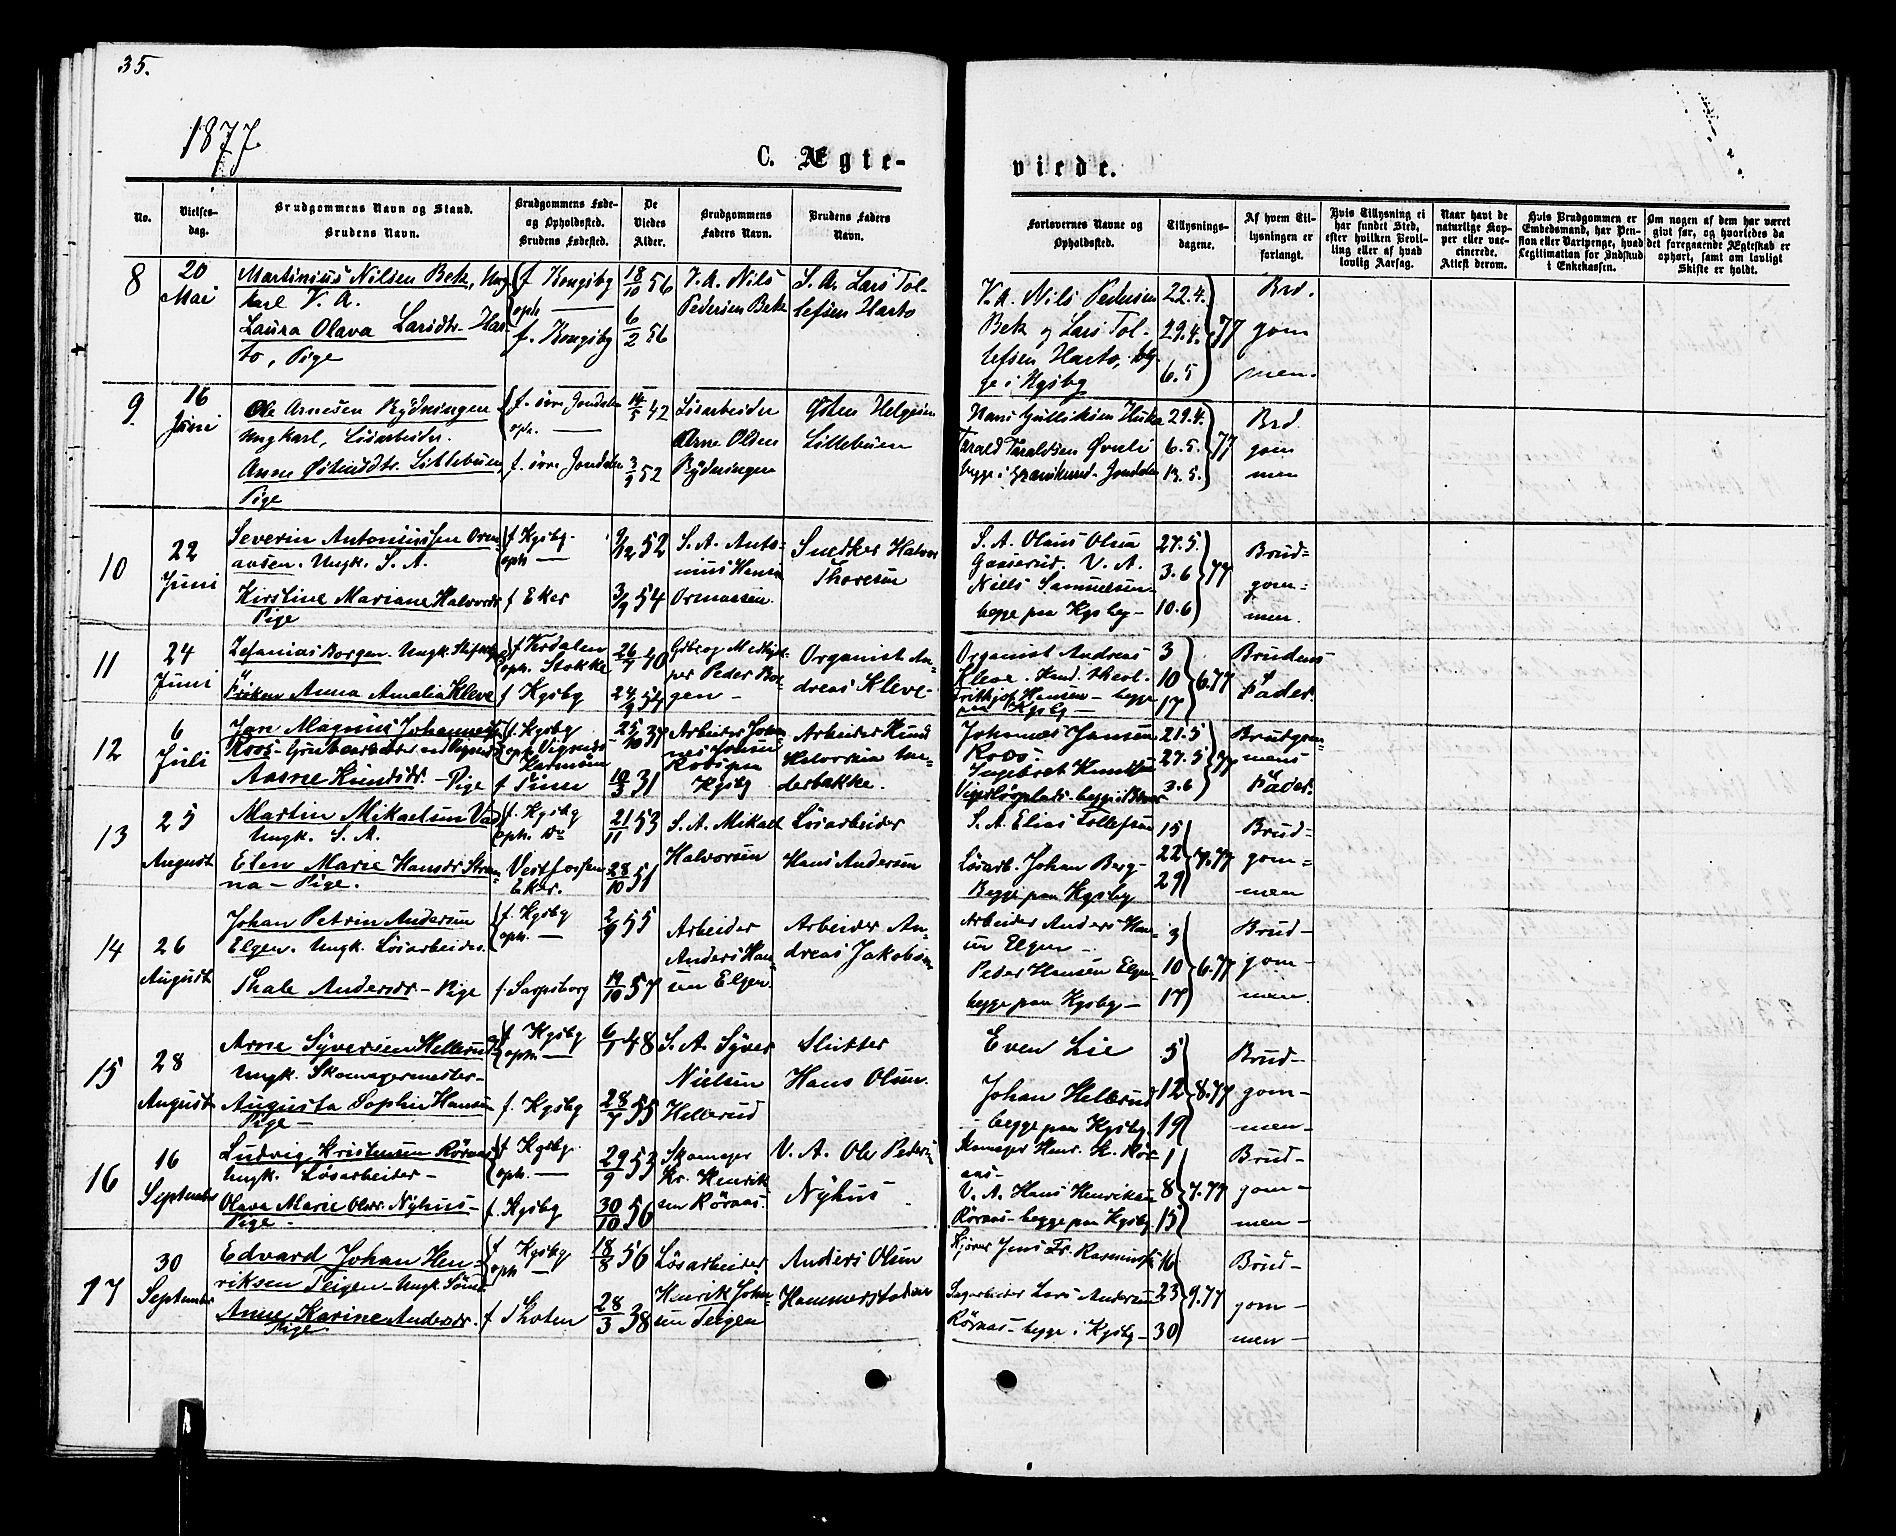 35.
1877.
C. Ægte-
viede.
No.
Vielses-
dag.
Brudgommens Navn og Stand.
Brudens Navn.
Brudgommens Føde-
og Opholdssted.
Brudens Fødested.
De
Viedes
Alder.
Brudgommens
Faders Navn.
Brudens Faders
Navn.
Forlovernes Navne og
Opholdssted.
Tillysnings-
dagene.
Af hvem Til-
lysningen er
forlangt.
Hvis Tillysning ei
har fundet Sted,
efter hvilken Bevil-
ling eller af hvad
lovlig Aarsag.
Naar havt de
naturlige Kop-
per eller vac-
cinerede.
Attest derom.
Hvis Brudgommen er
Embedsmand, har Pen-
sion eller Vartpenge, hvad
Legitimation for Indskud
i Enkekassen.
Om nogen af dem har været
gift før, og hvorledes da
det foregaaende Ægteskab er
ophørt, samt om lovligt
Skifte er holdt.
8
20
Mai
Martinius Nilsen Bek, Ung
karl V. A.
Laura Olava Larsdtr. Har-
to, Pige
f Kongsbg
oph —
f. Kongsbg
18/10 56
6/2 56
V. A. Nils
Pedersen Bek
S. A. Lars Tol-
lefsen Harto
V. A. Nils Pedersen
Bek og Lars Tol-
lefsen Harto, beg-
ge i Kgsbg
22.4.
29.4. 77
6.5
Brd.
gom
men.
9.
16
Juni
Ole Arnesen Rydningen
Ungkarl, Løsarbeider.
Anne Østensdtr. Lillebuen,
Pige
f. øvre Jondalen
oph. —
f. øvre Jondalen
14/5 42
3/9 52
Løsarbeider
Arne Olsen
Rydningen
Østen Helgesen
Lillebuen
Hans Gulliksen
Tarald Taraldsen Øvrli
begge i Jondalen
29.4.
6.5. 77
13.5.
Brd.
gom
men
10
22
Juni
Severin Antoniussen Orm
aasen. Ungk. S. A.
Kirstine Mariane Halvorsdr
Pige
f Kgsbg.
oph —
f Eker
9/12 52
3/9 54
S. A. Anto-
nius Hansen
Ormaasen.
Snedker Halvor
Thoresen
S. A. Olaus Olsen
V. A.
Niels Samuelsen
begge paa Kgsbg —
27.5.
3.6 77
10.6
Brud-
gom-
men.
11
24
Juni
Zefanias Borgen. Ungk.
Frøken Anna Amalia Kleve
f Verdalen
oph. Stokke
f Kgsbg
26/7 40
24/9 54
Peder Bor-
gen —
Organist An-
dreas Kleve.
Organist Andreas
Kleve. Kand. theol.
Frithjof Hansen — begge
paa Kgsbg —
3
10 6.77
17
Brudens
Fader.
12
6
Juli
Jan Magnus Johannesen
Roos —
Aasne Knudsdr. — Pige
f. Kgsbg
oph
f Tinn
25/10 37
19/3 31
Arbeider Johan-
nes Jansen
Roos paa
Kgsbg
Arbeider Knud
Halvorsen
derbakke.
Johannes Jansen
Roos.
Ingebret Knudsen
21.5
27.5 77
3.6
Brudgom-
mens
Fader.
13
25
August
Martin Mikaelsen Vad
Ungk. S. A.
Elen Marie Hansdr Stran
na — Pige.
f. Kgsbg
oph. Do
Vestfossen
Eker.
21/11 53
28/10 51
S. A. Mikael
Halvorsen
Løsarbeider
Hans Andersen
S. A. Elias Tollefsen
Løsarb. Johan Berg —
Begge paa Kgsbg
15
22 7.77
29
Brud-
gom-
men
14
26
August
Johan Petrin Andersen
Elgen. Ungk. Løsarbeider.
Thale Andersdr. — Pige
f. Kgsbg
oph. —
f Sarpsborg
2/9 55
19/10 57
Arbeider
Anders Han
sen Elgen
Arbeider An-
dreas Jakobsen
Arbeider Anders Han-
sen Elgen —
Peder Hansen Elgen
begge paa Kgsbg —
3
10 6.77
17
Brud-
gom-
men.
15
28
August
Arne Syversen Hellerud
Ungk. Skomagermester —
Augusta Sophie Hansen
Pige —
f Kgsbg
oph. —
f. Kgsbg
6/1 48
28/7 55
S. A. Syver
Nielsen
Hellerud
Slutter
Hans Olsen.
Even Lie
Johan Hellerud
— begge paa Kgsbg.
5
12 8.77
19
Brud-
gom-
men —
16
16
September
Ludvig Kristensen Røraas
Ungk. Løsarbeider —
Olava Marie Olsdr. Nyhus —
Pige —
f Kgsbg.
oph. —
f. Kgsbg
29/9 53
30/10 56
Skomager
Kr. Henrik
sen Røraas.
V. A. Ole Pedersen
Nyhus
Skomager Henr. K. Rør-
aas —
V. A. Hans Henriksen
Røraas — begge paa Kgsbg.
1
8 7.77
15
Brud-
gom-
men —
17
30
September
Edvard Johan Hen-
riksen Teigen — Ungk.
Anne Karine Andersdr.
Pige
f Kgsbg
oph —
f Thoten
18/8 56
28/3 38
Løsarbeider
Henrik John-
sen Teigen
Anders Olsen
Hammerstaden
Jens Fr. Rasmussen
Lars Andersen
Røraas — begge i Kgsbg —
16
23 9.77
30
Brud-
gom-
men —